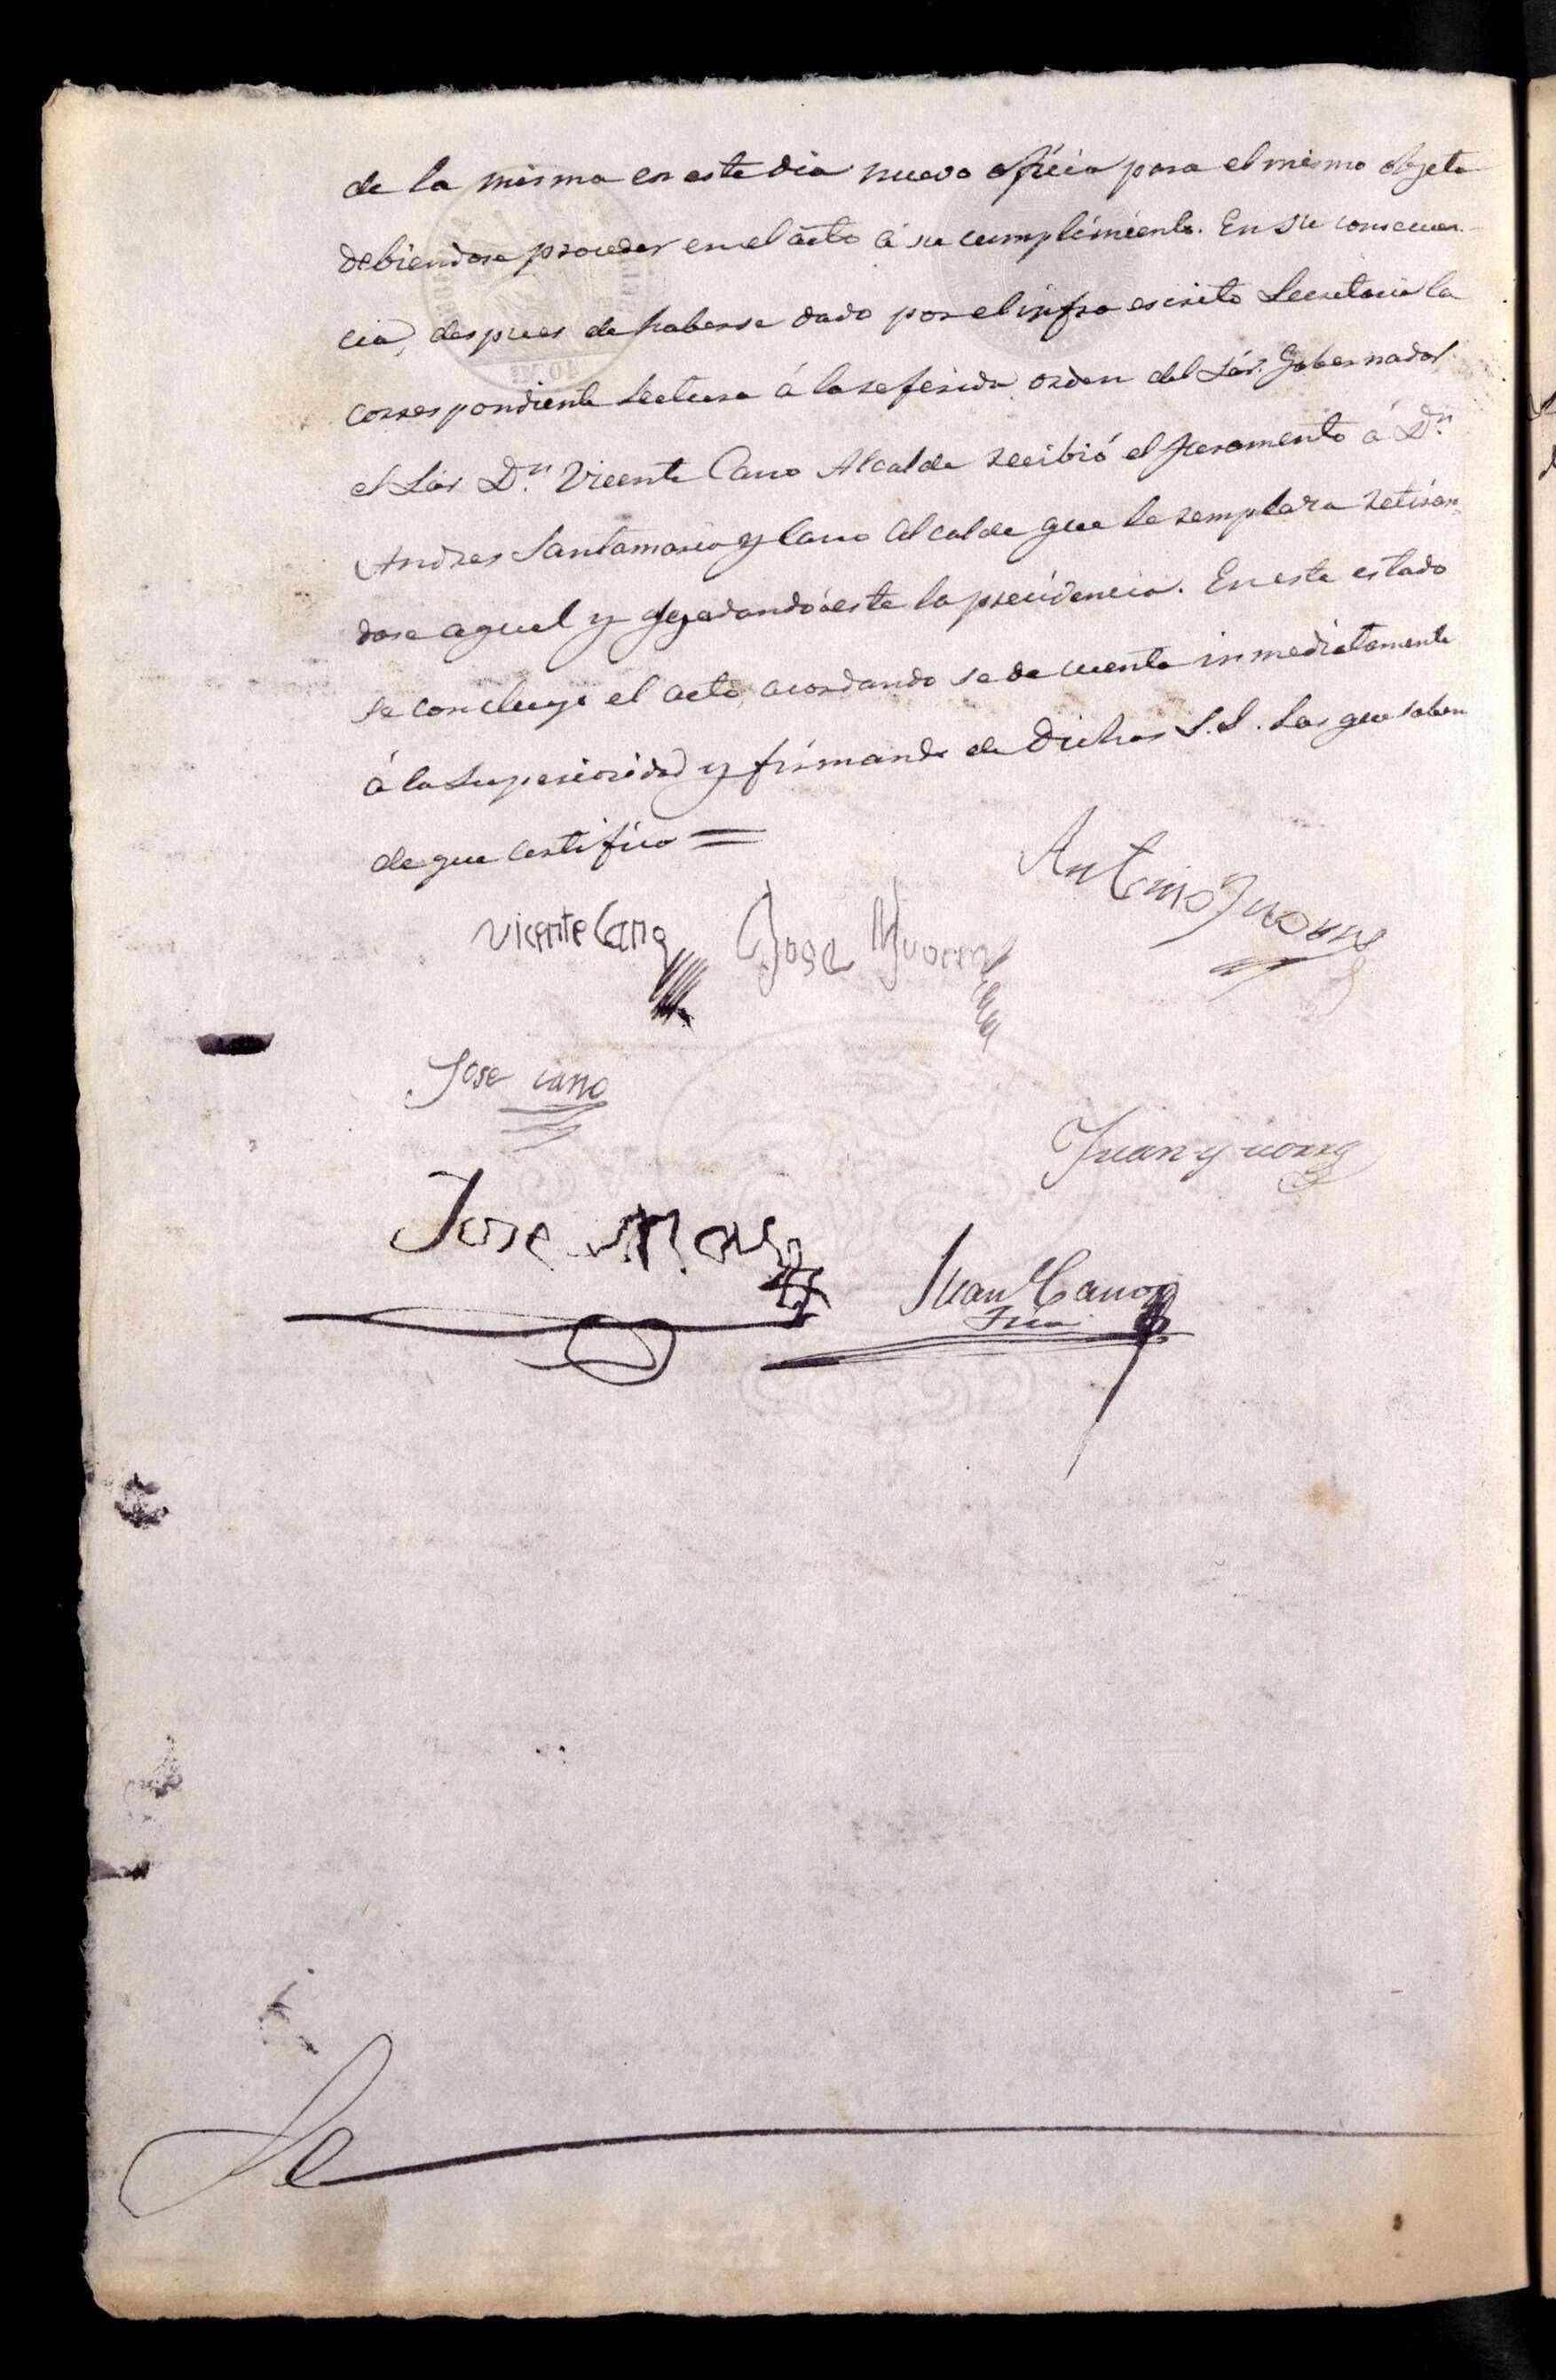 de la misma en este dia nuevo oficio para el mismo objeto
debiendose proceder en el acto á su cumplimiento. En su consecuen-
cia, despues de haberse dado por el infraescrito Secretario la
correspondiente lectura á la referida orden del Sór. Gobernador
el Sór D.n Vicente Cano Alcalde recibió el juramento á D.n
Andres Santamaria y Cano Alcalde que le remplaza retiran-
dose aquel y quedando á este la presidencia. En este estado
se concluyo el acto, acordando se de cuenta inmediatamente
á la Superioridad y firmando de dichos S.S. los que saben
de que certifico =
Vicente Cano Jose
Antonio
Jose Cano
Juan
Jose
Juan Cano
Srio